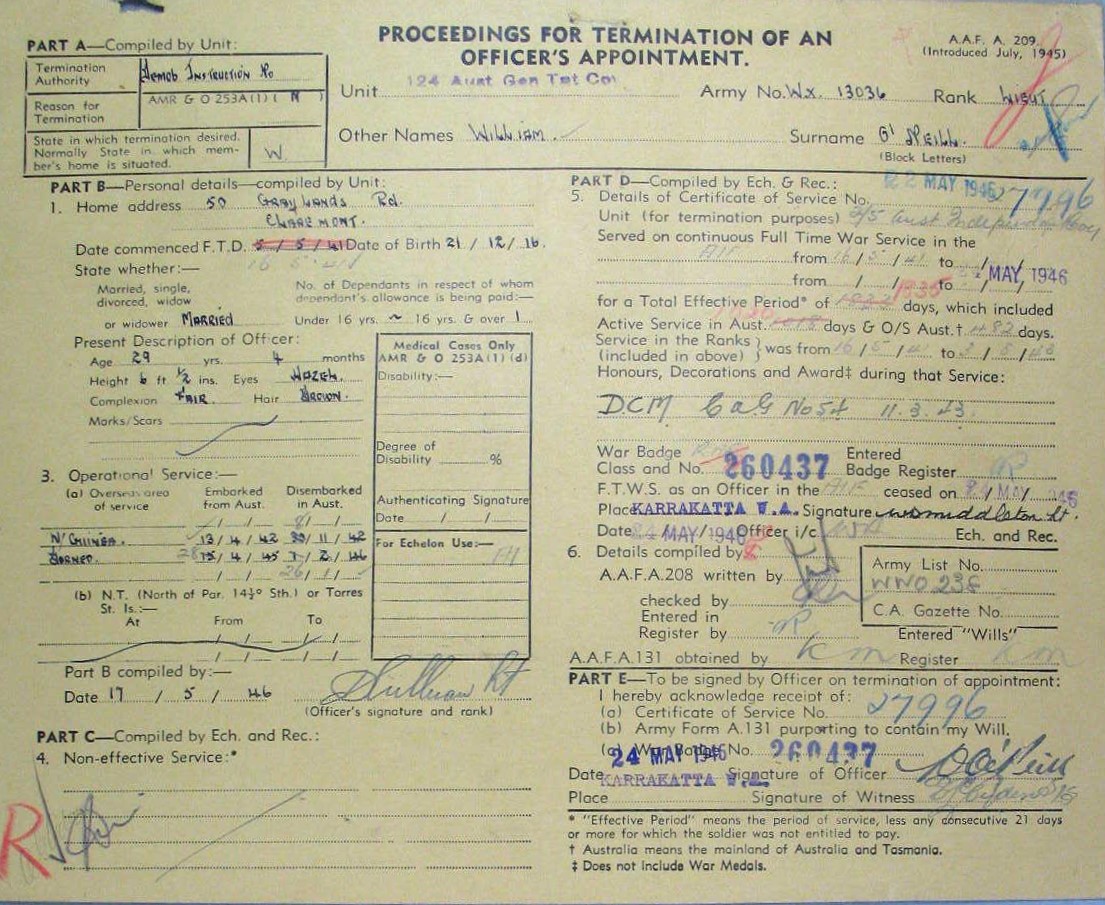 PROCEEDINGS FOR TERMINATION OF AN
OFFICER'S APPOINTMENT.
A.A.F. A. 209.
(Introduced July, 1945)
PART A—Compiled by Unit:
Termination Authority Demob Instruction No
AMR & O 253A(1) ( N )
Reason for Termination
State in which termination desired. Normally State in which member's home is situated. W
Unit 124 Aust Gen Tpt Coy Army No. Wx. 13036 Rank LIEUT
Other Names WILLIAM. Surname O'NEILL.
(Block Letters)
PART B—Personal details—compiled by Unit:
1. Home address 50 GRAYLANDS Rd.
CLAREMONT.
Date commenced F.T.D. 5 / 5 / 41 Date of Birth 21 / 12 / 16.
16 5 41
State whether:—
Married, single, divorced, widow or widower MARRIED
No. of Dependants in respect of whom dependant's allowance is being paid:—
Under 16 yrs. ~ 16 yrs. & over 1
Present Description of Officer:
Age 29 yrs. 4 months
Height 6 ft ½ ins. Eyes HAZEL.
Complexion FAIR. Hair BROWN.
Marks/Scars
Medical Cases Only
AMR & O 253A(1) (d)
Disability:—
Degree of Disability %
Authenticating Signature
Date / /
For Echelon Use:—
3. Operational Service:—
(a) Overseas area of service Embarked from Aust. Disembarked in Aust.
N' GUINEA. 13/ 4 / 42 30/ 11 / 42
BORNEO. 15/ 4 / 45 7 / 2 / 46
28
26 / 1
(b) N.T. (North of Par. 14½° Sth.) or Torres St. Is.:—
At From To
Part B compiled by:—
Date 17 / 5 / 46
(Officer's signature and rank)
PART C—Compiled by Ech. and Rec.:
4. Non-effective Service:*
R
PART D—Compiled by Ech. & Rec.:
22 MAY 1946
5. Details of Certificate of Service No. 27996
Unit (for termination purposes) 2/5 Aust Independent Coy
Served on continuous Full Time War Service in the
AIF from 16 / 5 / 41 to 24 MAY 1946
from / / to / /
for a Total Effective Period* of 1935 days, which included
Active Service in Aust. days & O/S Aust.† 482 days.
Service in the Ranks (included in above) } was from 16 / 5 / 41 to
Honours, Decorations and Award‡ during that Service:
DCM CaG No 54 11.3.43
War Badge Class and No. 260437 Entered Badge Register
F.T.W.S. as an Officer in the AIF ceased on 24 MAY 1946
Place KARRAKATTA W.A. Signature WSmiddleton Lt.
Date 24 MAY 1946 Officer i/c WA Ech. and Rec.
6. Details compiled by
A.A.F.A.208 written by
checked by
Entered in Register by
A.A.F.A.131 obtained by Km
Army List No.
WNO 236
C.A. Gazette No.
Entered "Wills" Register Km
PART E—To be signed by Officer on termination of appointment:
I hereby acknowledge receipt of:
(a) Certificate of Service No. 27996
(b) Army Form A.131 purporting to contain my Will.
(c) War Badge No. 260437
24 MAY 1946
Date Signature of Officer O'Neill
KARRAKATTA W.A.
Place Signature of Witness
* "Effective Period" means the period of service, less any consecutive 21 days
or more for which the soldier was not entitled to pay.
† Australia means the mainland of Australia and Tasmania.
‡ Does not include War Medals.